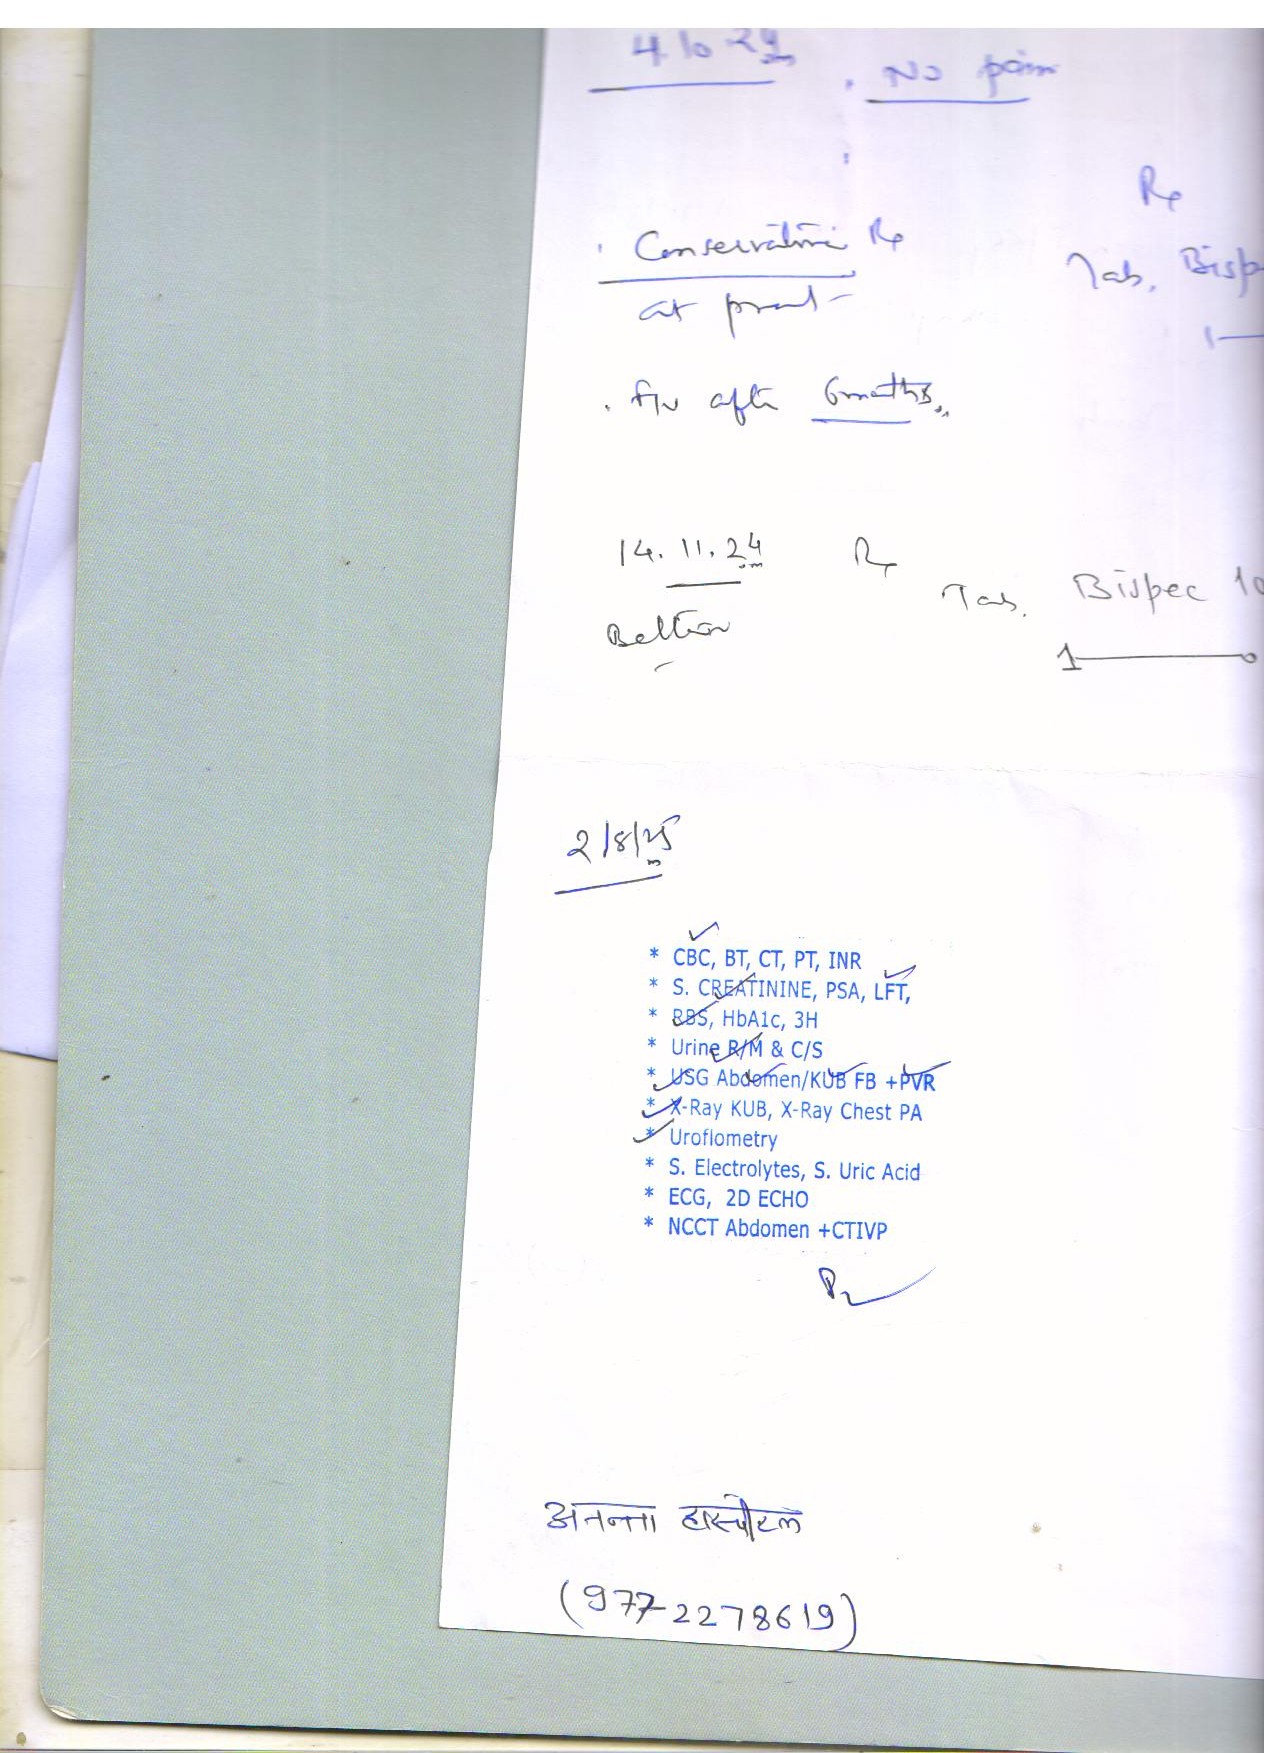 4.10.24
. No pain
Rx
. Conservative Rx
Tab. Bisp
at present
1
. f/u after 6 months.
14. 11. 24
Rx
Tab. Bispec 10
Better
1
2/8/25
* CBC, BT, CT, PT, INR
* S. CREATININE, PSA, LFT,
* RBS, HbA1c, 3H
* Urine R/M & C/S
* USG Abdomen/KUB FB +PVR
* X-Ray KUB, X-Ray Chest PA
* Uroflometry
* S. Electrolytes, S. Uric Acid
* ECG, 2D ECHO
* NCCT Abdomen +CTIVP
अनन्ता हास्पीटल
(977-2278619)